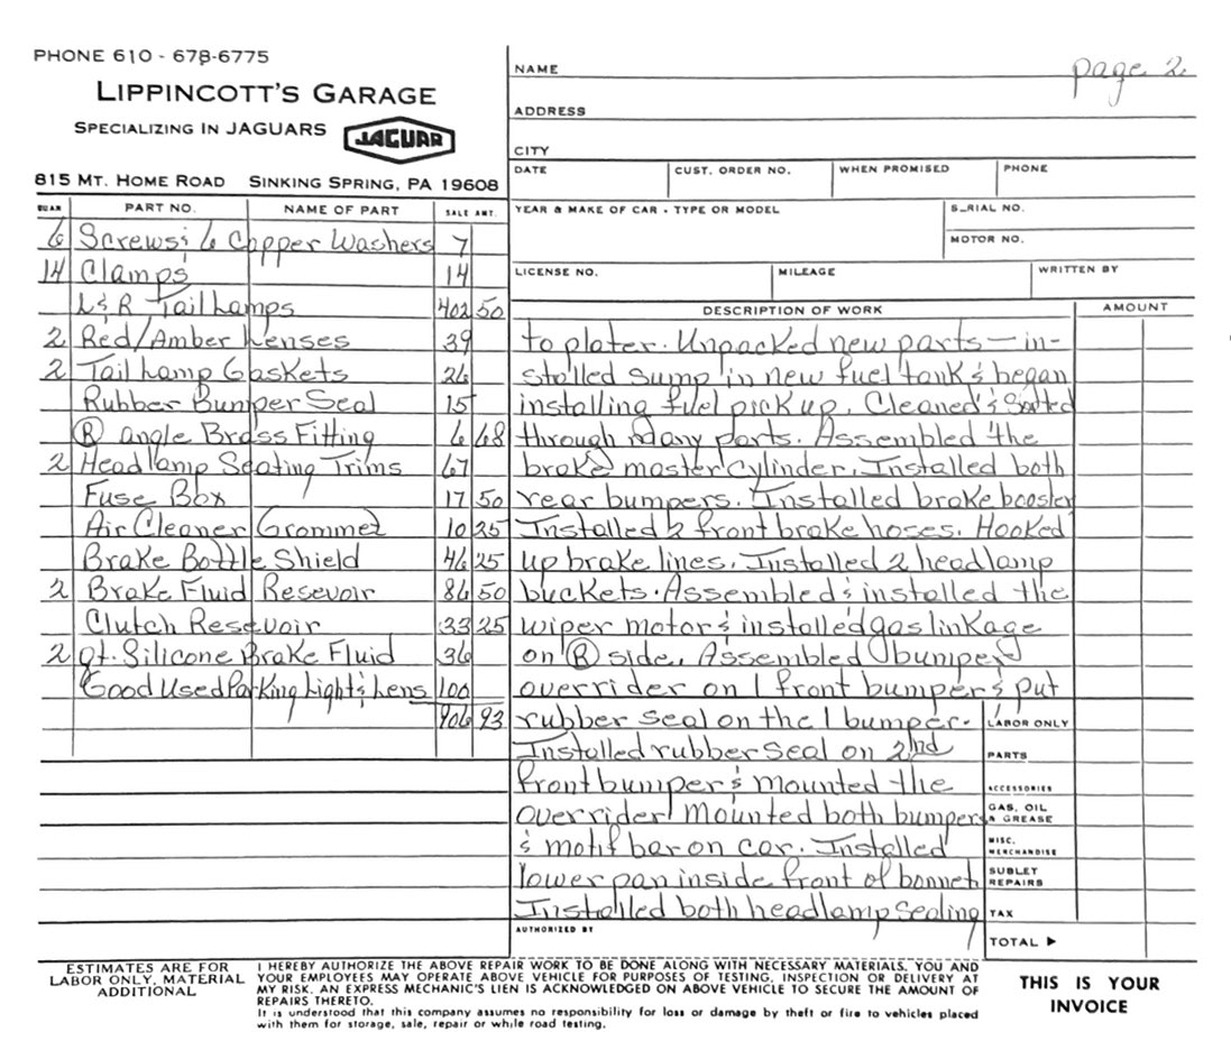 PHONE 610 - 678-6775
LIPPINCOTT'S GARAGE
SPECIALIZING IN JAGUARS JAGUAR
815 MT. HOME ROAD SINKING SPRING, PA 19608
page 2
NAME
ADDRESS
CITY
DATE CUST. ORDER NO. WHEN PROMISED PHONE
YEAR & MAKE OF CAR - TYPE OR MODEL SERIAL NO.
MOTOR NO.
LICENSE NO. MILEAGE WRITTEN BY
QUAN PART NO. NAME OF PART SALE AMT.
6 Screws & 6 Copper Washers 7
14 Clamps 14
L & R Tail Lamps 402 50
2 Red/Amber Lenses 39
2 Tail Lamp Gaskets 26
Rubber Bumper Seal 15
R angle Brass Fitting 6 68
2 Headlamp Sealing Trims 67
Fuse Box 17 50
Air Cleaner Grommet 10 25
Brake Bottle Shield 46 25
2 Brake Fluid Resevoir 86 50
Clutch Resevoir 33 25
2 qt. Silicone Brake Fluid 36
Good Used Parking Light & Lens 100
906 93
DESCRIPTION OF WORK AMOUNT
to plater. Unpacked new parts - in-
stalled sump in new fuel tank & began
installing fuel pick up. Cleaned & Sorted
through many parts. Assembled the
brake master cylinder. Installed both
rear bumpers. Installed brake booster
Installed 2 front brake hoses. Hooked
up brake lines. Installed 2 headlamp
buckets. Assembled & installed the
wiper motor & installed gas linkage
on R side. Assembled bumper
overrider on 1 front bumper & put
rubber seal on the 1 bumper.
Installed rubber seal on 2nd
front bumper & mounted the
overrider. Mounted both bumpers
& motif bar on car. Installed
lower pan inside front of bonnet
Installed both headlamp sealing
LABOR ONLY
PARTS
ACCESSORIES
GAS, OIL
& GREASE
MISC.
MERCHANDISE
SUBLET
REPAIRS
TAX
TOTAL ▶
AUTHORIZED BY
ESTIMATES ARE FOR
LABOR ONLY, MATERIAL
ADDITIONAL
I HEREBY AUTHORIZE THE ABOVE REPAIR WORK TO BE DONE ALONG WITH NECESSARY MATERIALS. YOU AND
YOUR EMPLOYEES MAY OPERATE ABOVE VEHICLE FOR PURPOSES OF TESTING, INSPECTION OR DELIVERY AT
MY RISK. AN EXPRESS MECHANIC'S LIEN IS ACKNOWLEDGED ON ABOVE VEHICLE TO SECURE THE AMOUNT OF
REPAIRS THERETO.
It is understood that this company assumes no responsibility for loss or damage by theft or fire to vehicles placed
with them for storage, sale, repair or while road testing.
THIS IS YOUR
INVOICE